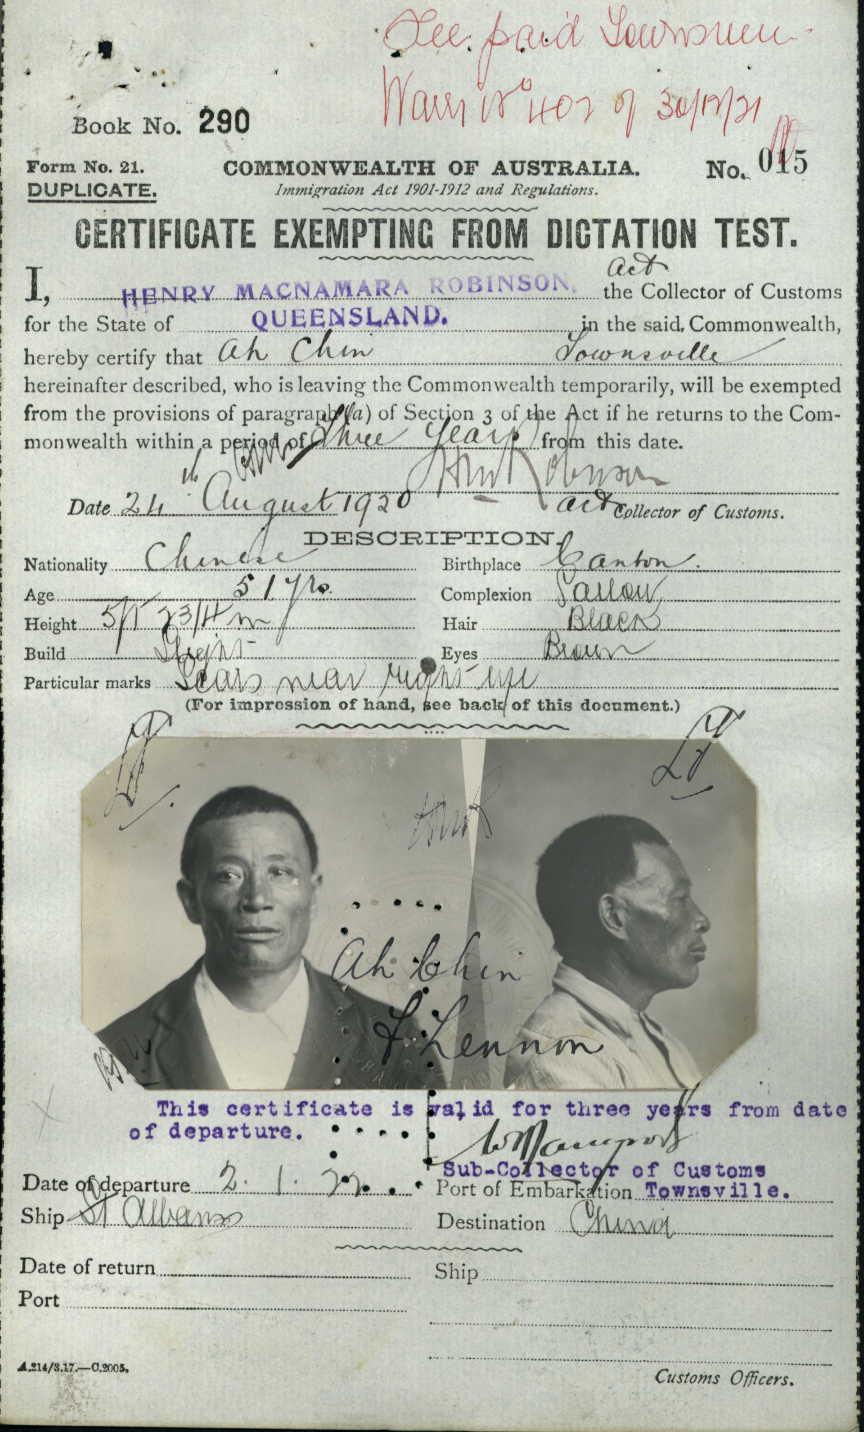 Fee paid
402 of 30/12/21
Book No. 290
Form No. 21.
COMMONWEALTH OF AUSTRALIA.
No. 015
DUPLICATE.
Immigration Act 1901-1912 and Regulations.
CERTIFICATE EXEMPTING FROM DICTATION TEST.
Act
I, HENRY MACNAMARA ROBINSON. the Collector of Customs
for the State of QUEENSLAND. in the said Commonwealth,
hereby certify that Ah Chin Townsville
hereinafter described, who is leaving the Commonwealth temporarily, will be exempted
from the provisions of paragraph (a) of Section 3 of the Act if he returns to the Com-
monwealth within a period of Three Years from this date.
HMRobinson
Date 24th August 1920 Act Collector of Customs.
DESCRIPTION.
Nationality Chinese Birthplace Canton.
Age 51 yrs. Complexion Sallow
Height 5ft 2 3/4 in Hair Black
Build Slight Eyes Brown
Particular marks Scars near right eye
(For impression of hand, see back of this document.)
Ah Chin
F Lennon
This certificate is valid for three years from date
of departure.
Sub-Collector of Customs
Date of departure 2.1.22 Port of Embarkation Townsville.
Ship St Albans Destination China
Date of return Ship
Port
A.214/3.17.—C.2005.
Customs Officers.